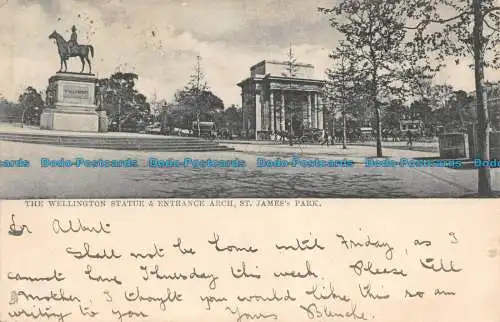 WELLINGTON
Dodo-Postcards Dodo-Postcards Dodo-Postcards Dodo-Postcards Dodo-Postcards
THE WELLINGTON STATUE & ENTRANCE ARCH, ST. JAMES's PARK.
Dr Albert
Shall not be home until Friday, as I
cannot have Thursday this week Please tell
Mother, I thought you would like this so am
writing to you Yours Blanche.